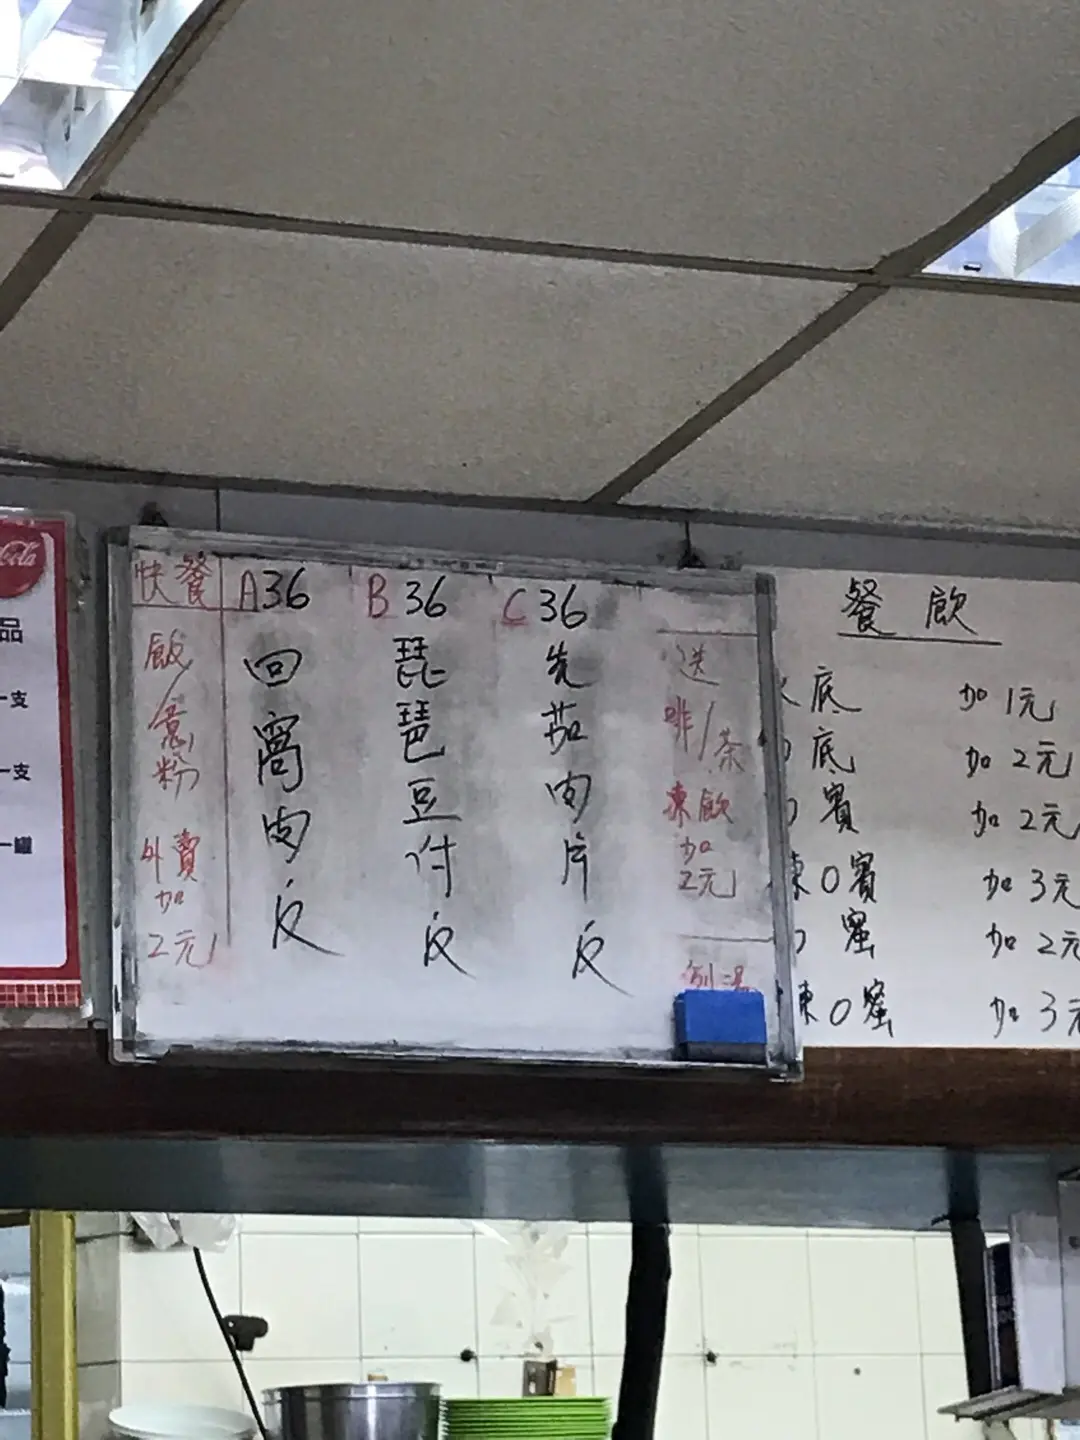 快餐
飯/意粉
外賣加2元
A36
回窩肉反
B 36
琵琶豆付反
C 36
先茄肉片反
送
啡/茶
凍飲加2元
例湯
餐飲
底 加1元
底 加2元
賓 加2元
凍O賓 加3元
蜜 加2元
凍O蜜 加3元
Cola
品
一支
一支
一罐